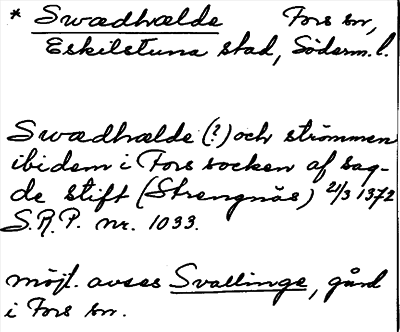 * Swædhælde Fors sn,
Eskilstuna stad, Söderm.l.
Swædhælde (?) och strömmen
ibidem i Fors socken af sag-
de stift (Strengnäs) 21/3 1372
S.R.P. nr. 1033.
möjl. avses Svallinge, gård
i Fors sn.